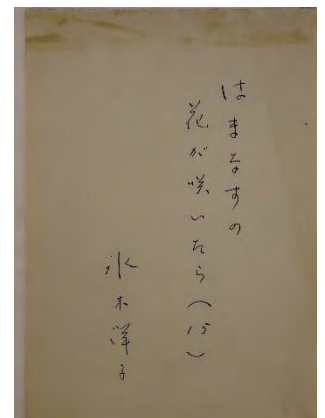 はまなすの
花が咲いたら(15)
水木洋子